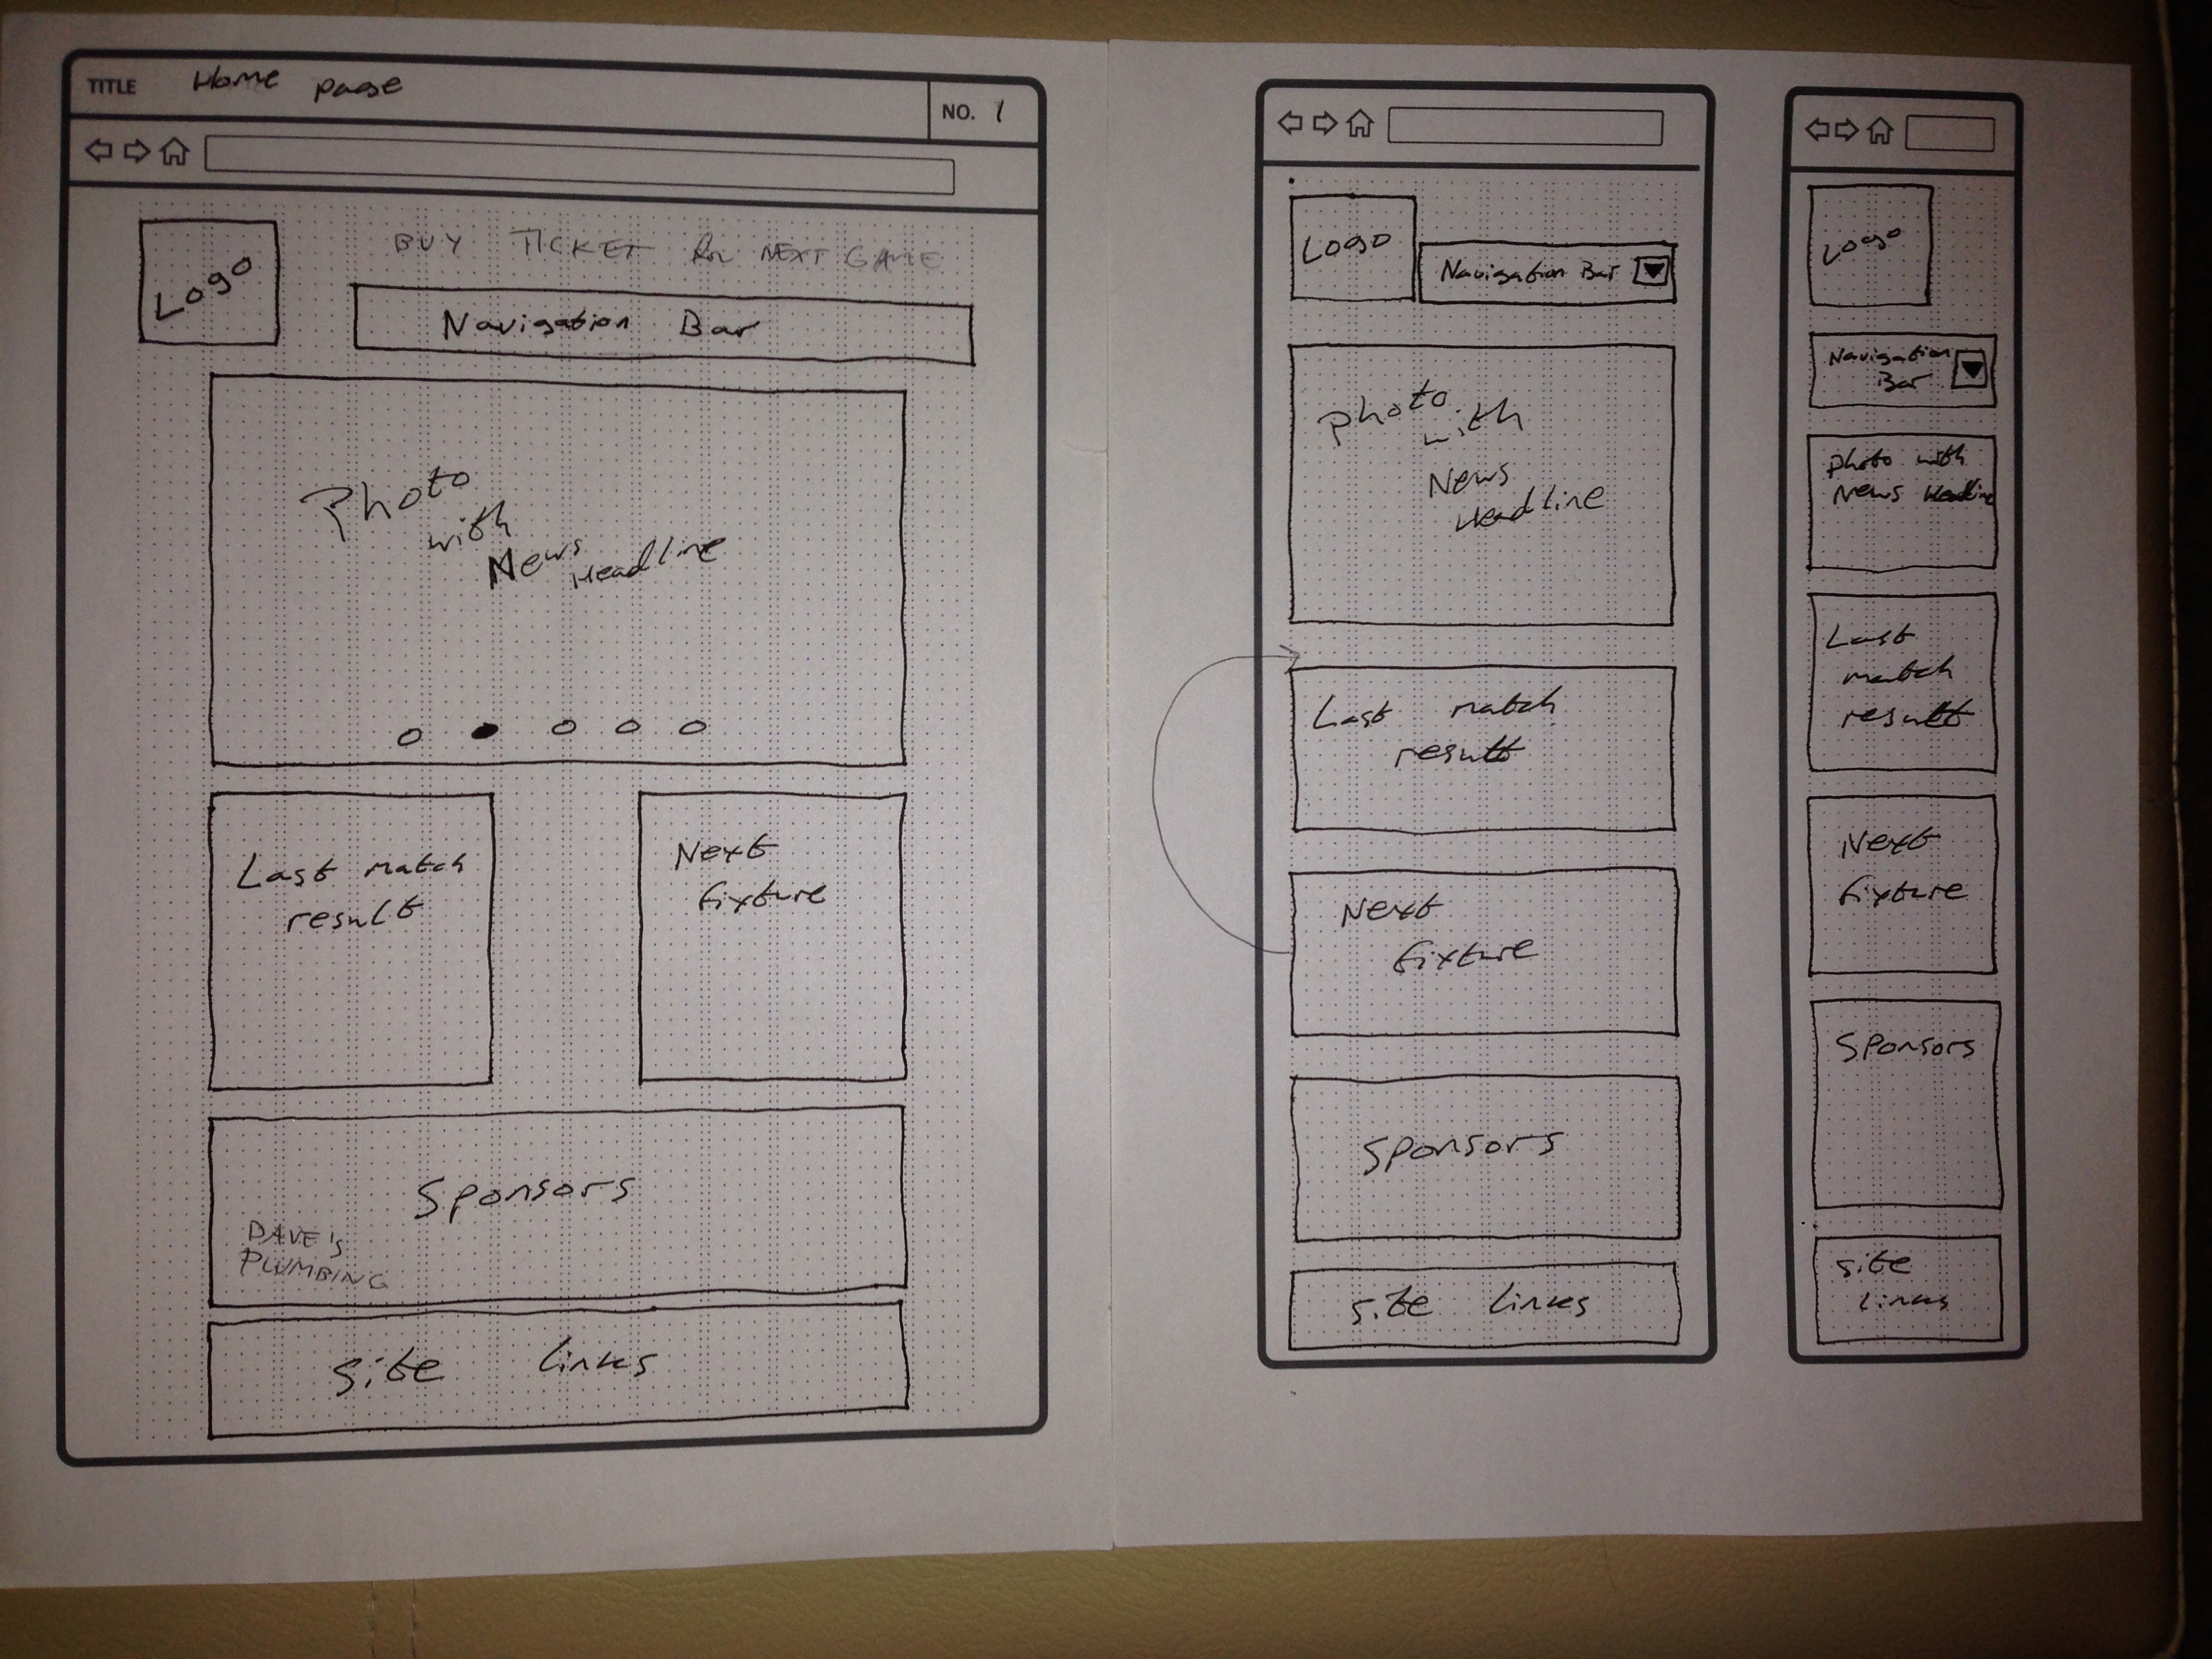 TITLE Home page
NO. 1
Logo
BUY TICKET for NEXT GAME
Navigation Bar
Photo
with
News Headline
Last match
result
Next
fixture
Sponsors
DAVE'S
PLUMBING
site links
Logo
Navigation Bar
Photo
with
News
Headline
Last match
result
Next
fixture
Sponsors
site links
Logo
Navigation
Bar
Photo with
News Headline
Last
match
result
Next
fixture
Sponsors
site
links